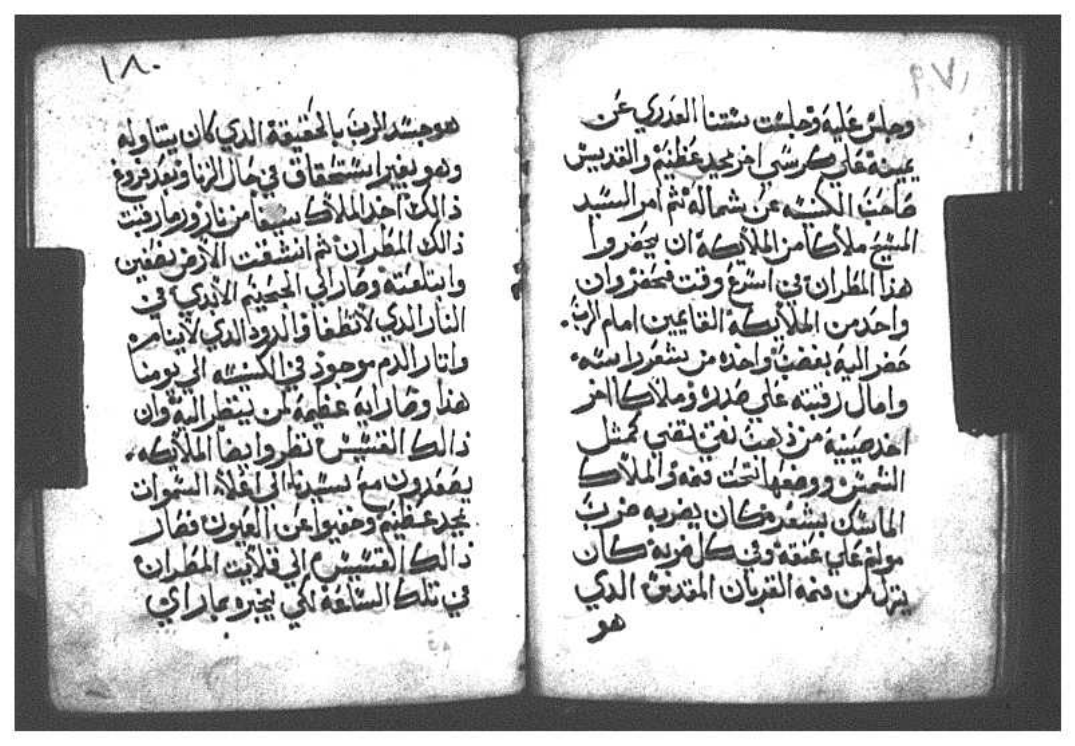 وجلس عليه وجلست ستنا العدري عن
يمينه علي كرسي اخر بمجد عظيم والقديس
صاحب الكنيسه عن شماله ثم امر السيد
المسيح ملاكا من الملايكة ان يحضروا
هذا المطران في اسرع وقت فحضر وان
واحد من الملايكة القايمين امام الرب.
حضر اليه بغضب واخده من شعر راسه
وامال رقبته علي صدره وملاكا اخر
اخد صينية من ذهب نقي كمثل
الشمس ووضعها تحت فمه والملاك
الماسك بشعره كان يضربه ضرب
مولم علي عنقه وفي كل ضربة كان
ينزل من فمه القربان المقدس الذي
هو
١٨٠
هو جسد الرب بالحقيقة الذي كان يتناوله
وهو بغير استحقاق في حال الزنا وبعد فروغ
ذالك اخد الملاك سيفا من نار ورما رقبت
ذالك المطران ثم انشقت الارض نصفين
وابتلعته وصار الي الجحيم الابدي في
النار الذي لا تطفا والدود الذي لا ينام
واثار الدم موجود في الكنيسه الي يومنا
هذا وصار ايه عظيمة لمن ينظر اليه وان
ذالك القسيس نظر وايضا الملايكه
يصعدون مع سيدنا الي اعلاء السموات
بمجد عظيم وخفيوا عن العيون فصار
ذالك القسيس الي قلايت المطران
في تلك الساعة لكي يخبره بما راي